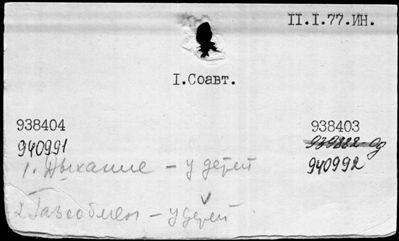 II.I.77.ИН.
I.Соавт.
938404 938403
940991 939882-од
1. Дыхание – у детей 940992
2. Газообмен – у детей